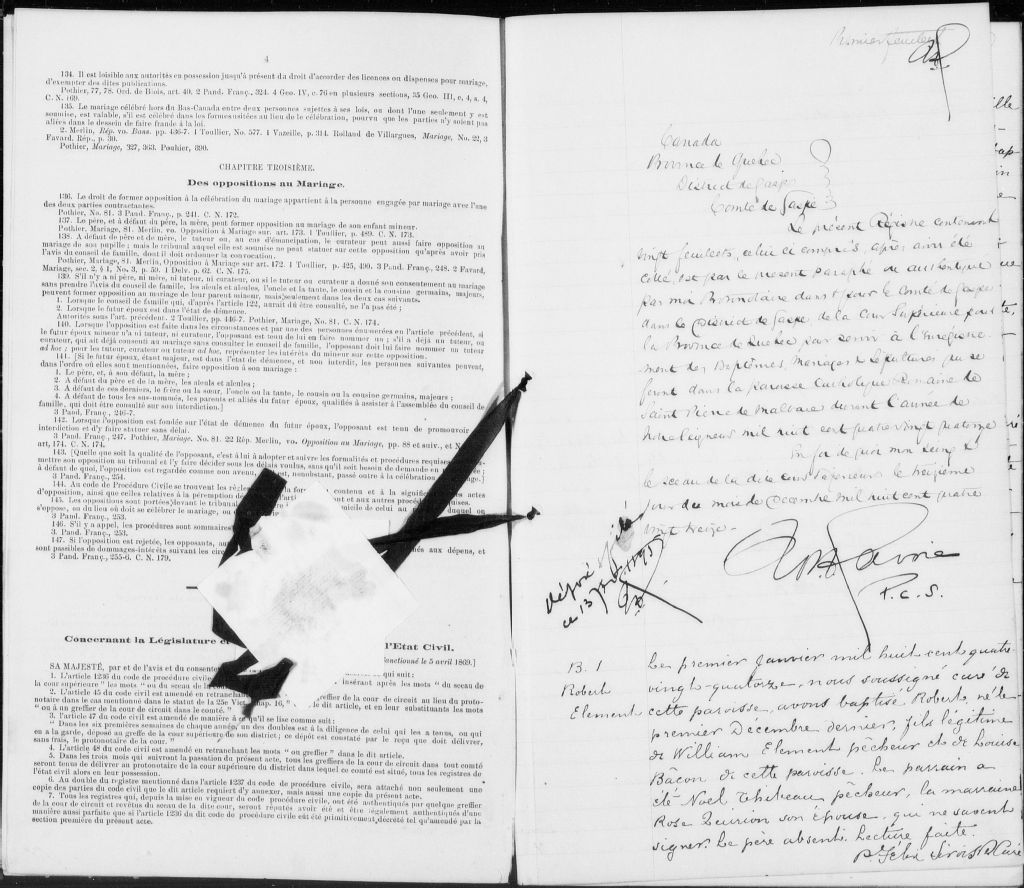 4
134. Il est loisible aux autorités en possession jusqu'à présent du droit d'accorder des licences ou dispenses pour mariage,
d'exempter des dites publications.
Pothier, 77, 78. Ord. de Blois, art. 40. 2 Pand. Franç., 324. 4 Geo. IV, c. 76 en plusieurs sections, 35 Geo. III, c. 4, s. 4,
C. N. 169.
135. Le mariage célébré hors du Bas-Canada entre deux personnes sujettes à ses lois, ou dont l'une seulement y est
soumise, est valable, s'il est célébré dans les formes usitées au lieu de la célébration, pourvu que les parties n'y soient pas
allées dans le dessein de faire fraude à la loi.
2. Merlin, Rép. vo. Bans. pp. 436-7. 1 Toullier, No. 577. 1 Vazeille, p. 314. Rolland de Villargues, Mariage, No. 22, 3
Favard. Rép., p. 30.
Pothier, Mariage, 327, 363. Pouhier, 390.
CHAPITRE TROISIÈME.
Des oppositions au Mariage.
136. Le droit de former opposition à la célébration du mariage appartient à la personne engagée par mariage avec l'une
des deux parties contractantes.
Pothier, No. 81. 3 Pand. Franç., p. 241. C. N. 172.
137. Le père, et à défaut du père, la mère, peut former opposition au mariage de son enfant mineur.
Pothier, Mariage, 81. Merlin, vo. Opposition à Mariage sur art. 173. 1 Toullier, p. 489. C. N. 173.
138. A défaut de père et de mère, le tuteur ou, au cas d'émancipation, le curateur peut aussi faire opposition au
mariage de son pupille ; mais le tribunal auquel elle est soumise ne peut statuer sur cette opposition qu'après avoir pris
l'avis du conseil de famille, dont il doit ordonner la convocation.
Pothier, Mariage, 81. Merlin, Opposition à Mariage sur art. 172. 1 Toullier, p. 425, 490. 3 Pand. Franç., 248. 2 Favard,
Mariage, sec. 2, § 1, No. 3, p. 59. 1 Delv. p. 62. C. N. 175.
139. S'il n'y a ni père, ni mère, ni tuteur, ni curateur, ou si le tuteur ou curateur a donné son consentement au mariage
sans prendre l'avis du conseil de famille, les aïeuls et aïeules, l'oncle et la tante, le cousin et la cousine germains, majeurs,
peuvent former opposition au mariage de leur parent mineur, mais seulement dans les deux cas suivants.
1. Lorsque le conseil de famille qui, d'après l'article 122, aurait dû être consulté, ne l'a pas été ;
2. Lorsque le futur époux est dans l'état de démence.
Autorités sous l'art. précédent. 2 Toullier, pp. 446-7. Pothier, Mariage, No. 81. C. N. 174.
140. Lorsque l'opposition est faite dans les circonstances et par une des personnes énumérées en l'article précédent, si
le futur époux mineur n'a ni tuteur, ni curateur, l'opposant est tenu de lui en faire nommer un ; s'il a déjà un tuteur, ou
curateur, qui ait déjà consenti au mariage sans consulter le conseil de famille, l'opposant doit lui faire nommer un tuteur
ad hoc ; pour les tuteur, curateur ou tuteur ad hoc, représenter les intérêts du mineur sur cette opposition.
141. [Si le futur époux, étant majeur, est dans l'état de démence, et non interdit, les personnes suivantes peuvent,
dans l'ordre où elles sont mentionnées, faire opposition à son mariage :
1. Le père, et, à son défaut, la mère ;
2. A défaut du père et de la mère, les aïeuls et aïeules ;
3. A défaut de ces derniers, le frère ou la sœur, l'oncle ou la tante, le cousin ou la cousine germains, majeurs ;
4. A défaut de tous les sus-nommés, les parents et alliés du futur époux, qualifiés à assister à l'assemblée du conseil de
famille, qui doit être consulté sur son interdiction.]
3 Pand. Franç., 246-7.
142. Lorsque l'opposition est fondée sur l'état de démence du futur époux, l'opposant est tenu de promouvoir
interdiction et d'y faire statuer sans délai.
3 Pand. Franç., 247. Pothier, Mariage. No. 81. 22 Rép. Merlin, vo. Opposition au Mariage, pp. 88 et suiv., et N
art, 174. C. N. 174.
143. [Quelle que soit la qualité de l'opposant, c'est à lui à adopter et suivre les formalités et procédures requises
mettre son opposition au tribunal et l'y faire décider sous les délais voulus, sans qu'il soit besoin de demande en
à défaut de quoi, l'opposition est regardée comme non avenue, nonobstant, passé outre à la célébration
3 Pand. Franç., 254.
144. Au code de Procédure Civile se trouvent les règles la forme, contenu et à la signification actes
d'opposition, ainsi que celles relatives à la péremption
145. Les oppositions sont portées devant le tribunal
s'oppose, ou du lieu où doit se célébrer le mariage, ou
3 Pand. Franç., 253.
146. S'il y a appel, les procédures sont sommaires
3. Pand. Franç., 253.
147. Si l'opposition est rejetée, les opposants, au és aux dépens, et
sont passibles de dommages-intérêts suivant les circ
3 Pand. Franç., 255-6. C. N. 179.
Concernant la Législature et l'Etat Civil.
anctionné le 5 avril 1869.]
SA MAJESTÉ, par et de l'avis et du consente qui suit:
1. L'article 1236 du code de procédure civile insérant après les mots " du sceau de
la cour supérieure " les mots " ou du sceau de la
2. L'article 45 du code civil est amendé en retranch greffier de la cour de circuit au lieu du proto-
notaire dans le cas mentionné dans le statut de la 25e Vic., cap. 16, " le dit article, et en leur substituant les mots
" ou à un greffier de la cour de circuit dans le comté. "
3. l'article 47 du code civil est amendé de manière à ce qu'il se lise comme suit :
" Dans les six premières semaines de chaque année, un des doubles est à la diligence de celui qui les a tenus, ou qui
en a la garde, déposé au greffe de la cour supérieure de son district ; ce dépôt est constaté par le reçu que doit délivrer,
sans frais, le protonotaire de la cour. "
4. L'article 48 du code civil est amendé en retranchant les mots " ou greffier " dans le dit article.
5. Dans les trois mois qui suivront la passation du présent acte, tous les greffiers de la cour de circuit dans tout comté
seront tenus de délivrer au protonotaire de la cour supérieure du district dans lequel ce comté est situé, tous les registres de
l'état civil alors en leur possession.
6. Au double du registre mentionné dans l'article 1237 du code de procédure civile, sera attaché non seulement une
copie des parties du code civil que le dit article requiert d'y annexer, mais aussi une copie du présent acte.
7. Tous les registres qui, depuis la mise en vigueur du code procédure civile, ont été authentiqués par quelque greffier
de la cour de circuit et revêtus du sceau de la dite cour, seront réputés avoir été et être légalement authentiqués d'une
manière aussi parfaite que si l'article 1236 du dit code de procédure civile eut été primitivement décrété tel qu'amendé par la
section première du présent acte.
Premier feuillet
Canada
Province de Québec
District de Gaspé
Comté de Gaspé
Le présent Régistre contenant
vingt feuillets, celui ci compris, après avoir été
coté, est par le présent paraphé et authentiqué
par moi Protonotaire dans & pour le Comté de Gaspé
dans le District de Gaspé de la Cour Supérieure pour
la Province de Québec pour servir à l'enregistre-
ment des Baptêmes, Mariages & Sépultures qui se
feront dans la Paroisse Catholique Romaine de
Saint Pierre de Malbaie durant l'année de
Notre Seigneur mil huit cent quatre vingt quatorze
En foi de quoi mon seing &
le sceau de la dite Cour Supérieure le treizième
jour du mois de Décembre mil huit cent quatre
vingt treize -
P. C. S.
Déposé
ce 13 1895
B. 1
Robert
Element
Le premier Janvier mil huit cent quatre
vingt-quatorze, nous soussigné curé de
cette paroisse, avons baptisé Robert, né le
premier Décembre dernier, fils légitime
de William Element pêcheur et de Louise
Bacon de cette paroisse. Le parrain a
été Noel Thibeau pêcheur, la marraine
Rose son épouse, qui ne savent
signer. Le père absent. Lecture faite.
P. Félix Sirois Ptre Curé